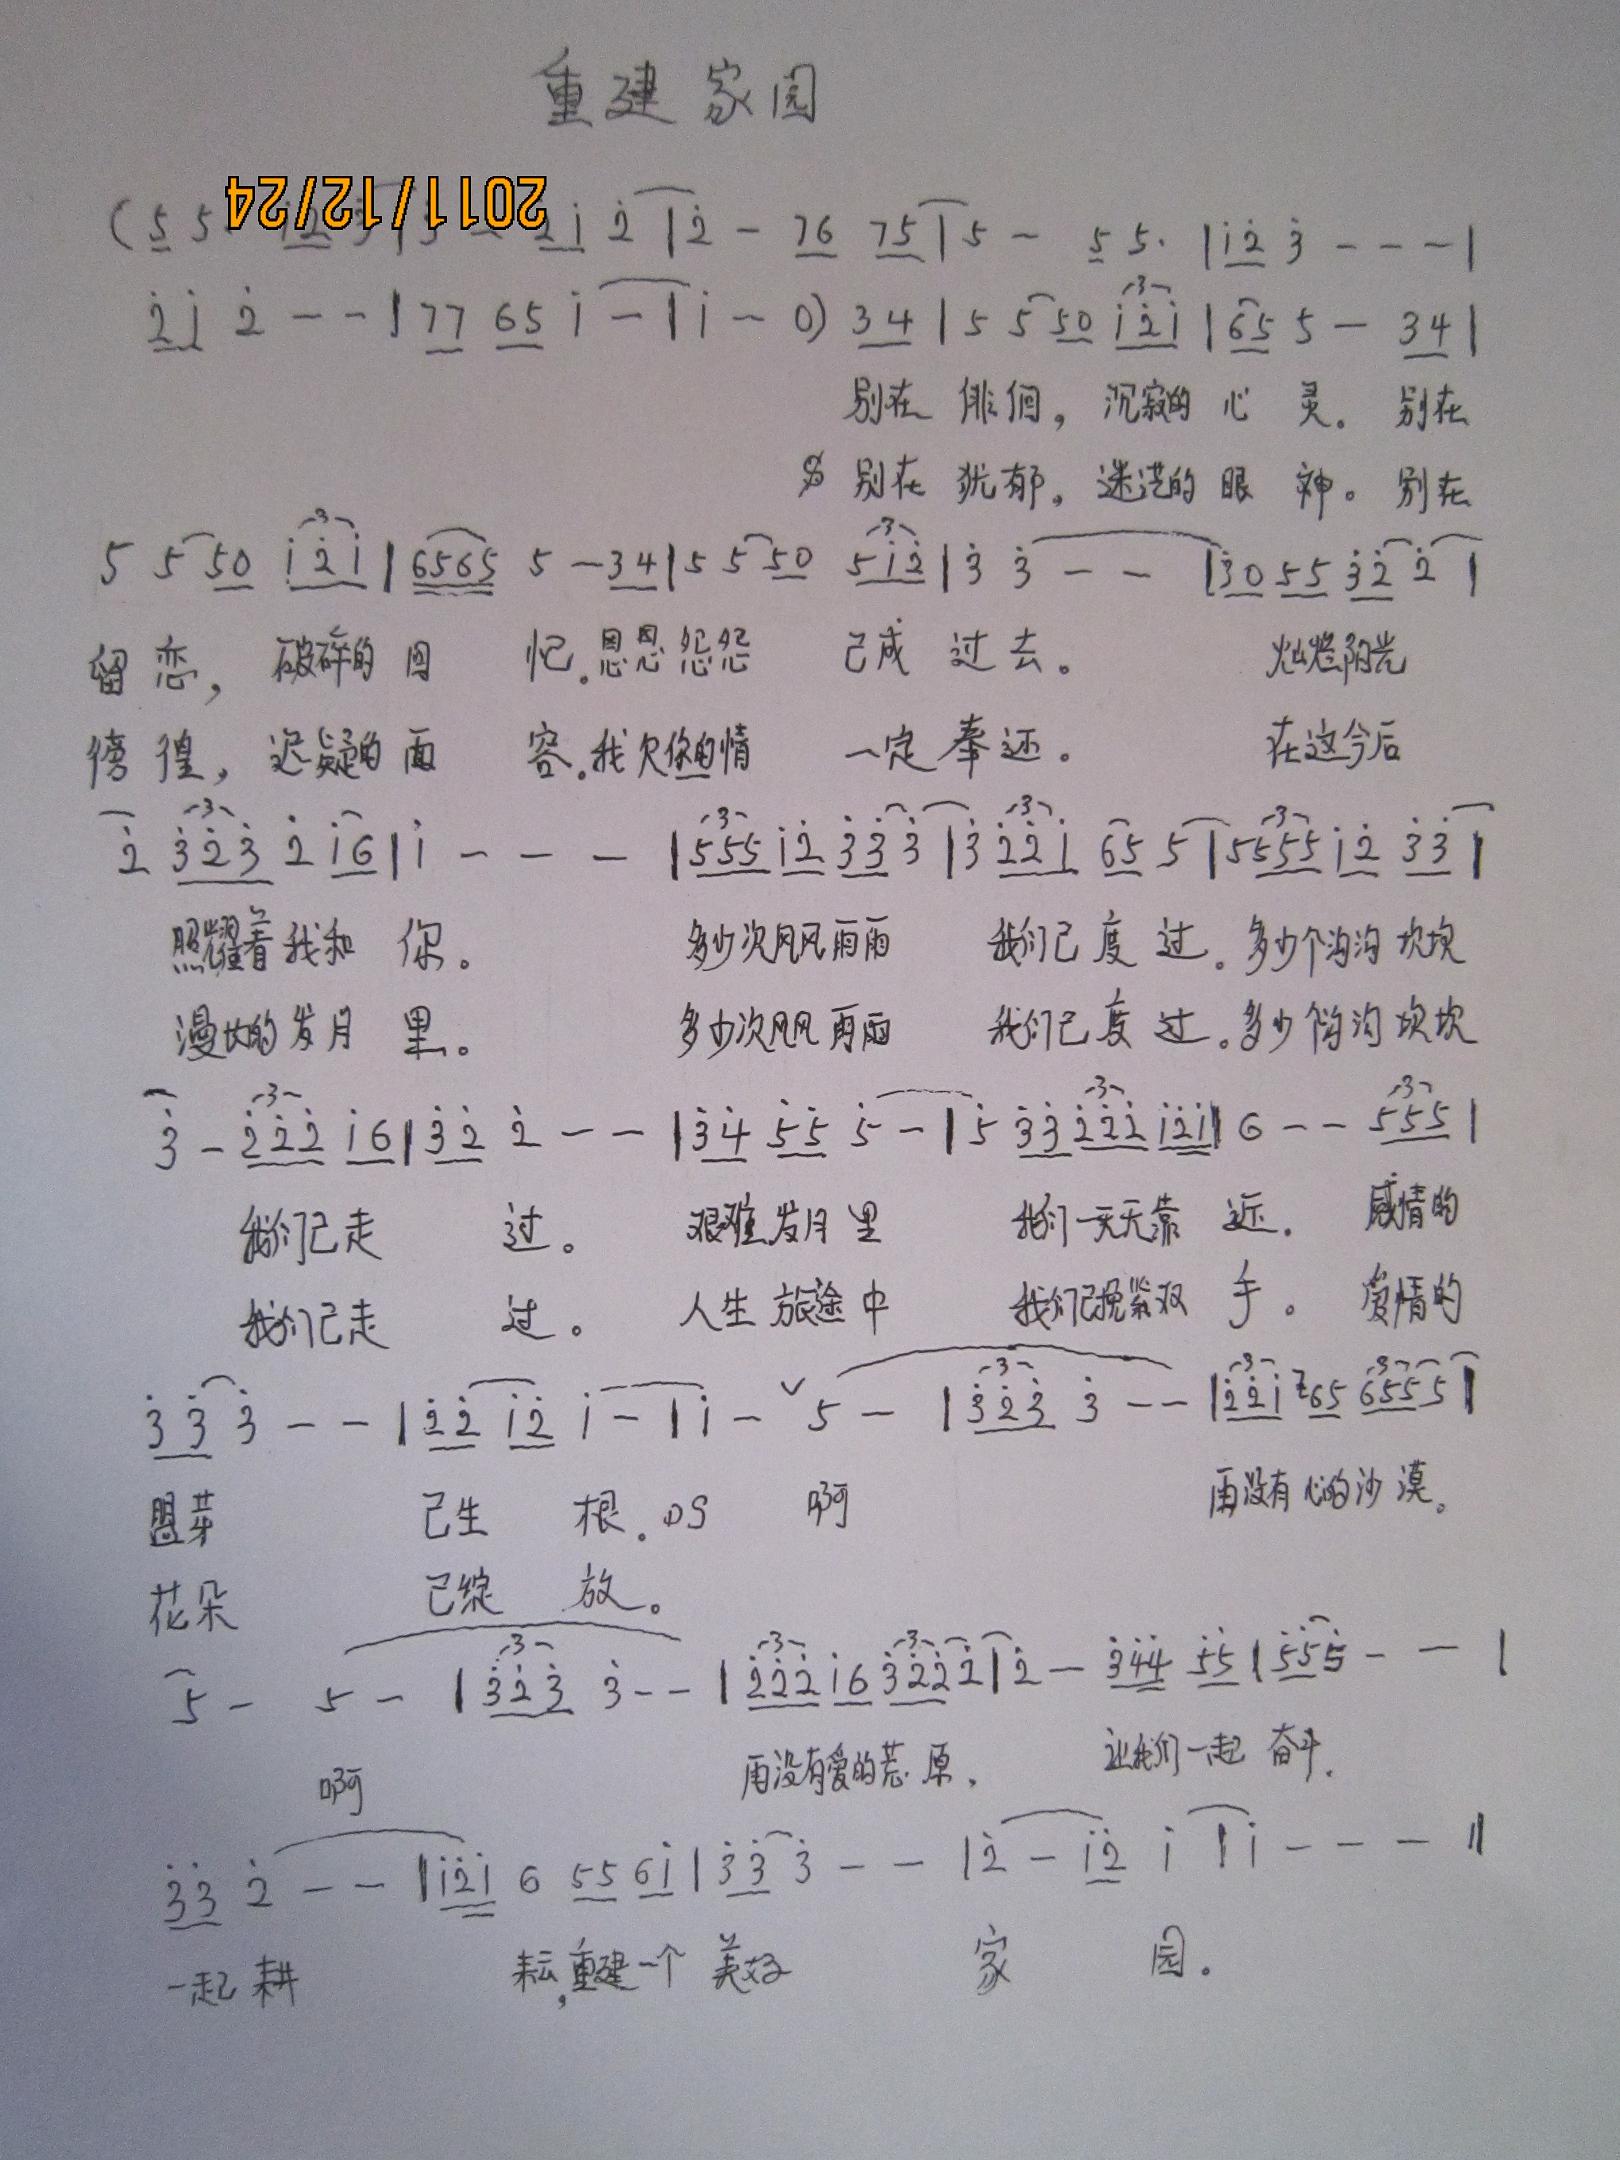 重建家园
2011/12/24
(5 5· i̇2̇ 3̇ | 3̇ - 2̇i̇ 2̇ | 2̇ - 76 75 | 5 - 5 5· | i̇2̇ 3̇ - - - |
2̇i̇ 2̇ - - | 77 65 i̇ - | i̇ - 0) 34 | 5 5 50 i̇2̇i̇ | 65 5 - 34 |
别在 徘徊，沉寂的 心 灵。别在
别在 犹郁，迷茫的 眼 神。别在
5 5 50 i̇2̇i̇ | 6565 5 - 34 | 5 5 50 5i̇2̇ | 3̇ 3̇ - - | 3̇0 55 3̇2̇ 2̇ |
留恋，破碎的 回 忆.恩恩怨怨 已成 过去。 灿烂阳光
徬徨，迟疑的面 容.我欠你的情 一定 奉还。 在这今后
2̇ 3̇2̇3̇ 2̇ i̇6 | i̇ - - - | 555 i̇2̇ 3̇3̇ 3̇ | 3̇ 2̇2̇i̇ 65 5 | 5555 i̇2̇ 3̇3̇ |
照耀着我和 你。 多少次风风雨雨 我们已 度 过。多少个沟沟 坎坎
漫长的岁月 里。 多少次风风雨雨 我们已度 过。多少个沟沟 坎坎
3̇ - 2̇2̇2̇ i̇6 | 3̇2̇ 2̇ - - | 3̇4̇ 5̇5̇ 5̇ - | 5̇ 3̇3̇ 2̇2̇2̇ i̇2̇i̇ | 6 - - 555 |
我们已走 过。 艰难岁月 里 我们一天天靠 近. 感情的
我们已走 过。 人生 旅途中 我们已挽紧双 手。 爱情的
3̇3̇ 3̇ - - | 2̇2̇ i̇2̇ i̇ - | i̇ - ˅ 5 - | 3̇2̇3̇ 3̇ - - | 2̇2̇i̇ 65 655 5 |
盟芽 已生 根. DS 啊 再没有 心的沙 漠。
花朵 已绽 放。
5 - 5 - | 3̇2̇3̇ 3̇ - - | 2̇2̇2̇ i̇6 3̇2̇2̇ 2̇ | 2̇ - 3̇4̇4̇ 5̇5̇ | 5̇5̇5̇ - - |
啊 再没有爱的荒 原， 让我们一起 奋斗.
3̇3̇ 2̇ - - | i̇2̇i̇ 6 55 6i̇ | 3̇3̇ 3̇ - - | 2̇ - i̇2̇ i̇ | i̇ - - - ‖
一起 耕 耘，重建一个 美好 家 园。